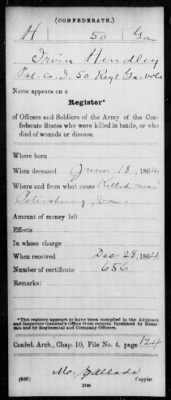 (CONFEDERATE.)
H 50 Ga
Irvin Hendley
Pvt. Co. I, 50 Regt. Ga. Vols
Name appears on a
Register*
of Officers and Soldiers of the Army of the Confederate States who were killed in battle, or who
died of wounds or disease.
Where born
When deceased June 18, 1864
Where and from what cause Killed near
Petersburg, Va
Amount of money left
Effects
In whose charge
When received Dec 28, 1864
Number of certificate 656
Remarks:
*This register appears to have been compiled in the Adjutant
and Inspector General's Office from record furnished by Hospitals
and by Regimental and Company Officers.
Confed. Arch., Chap. 10, File No. 4, page 124
(635)
Copyist.